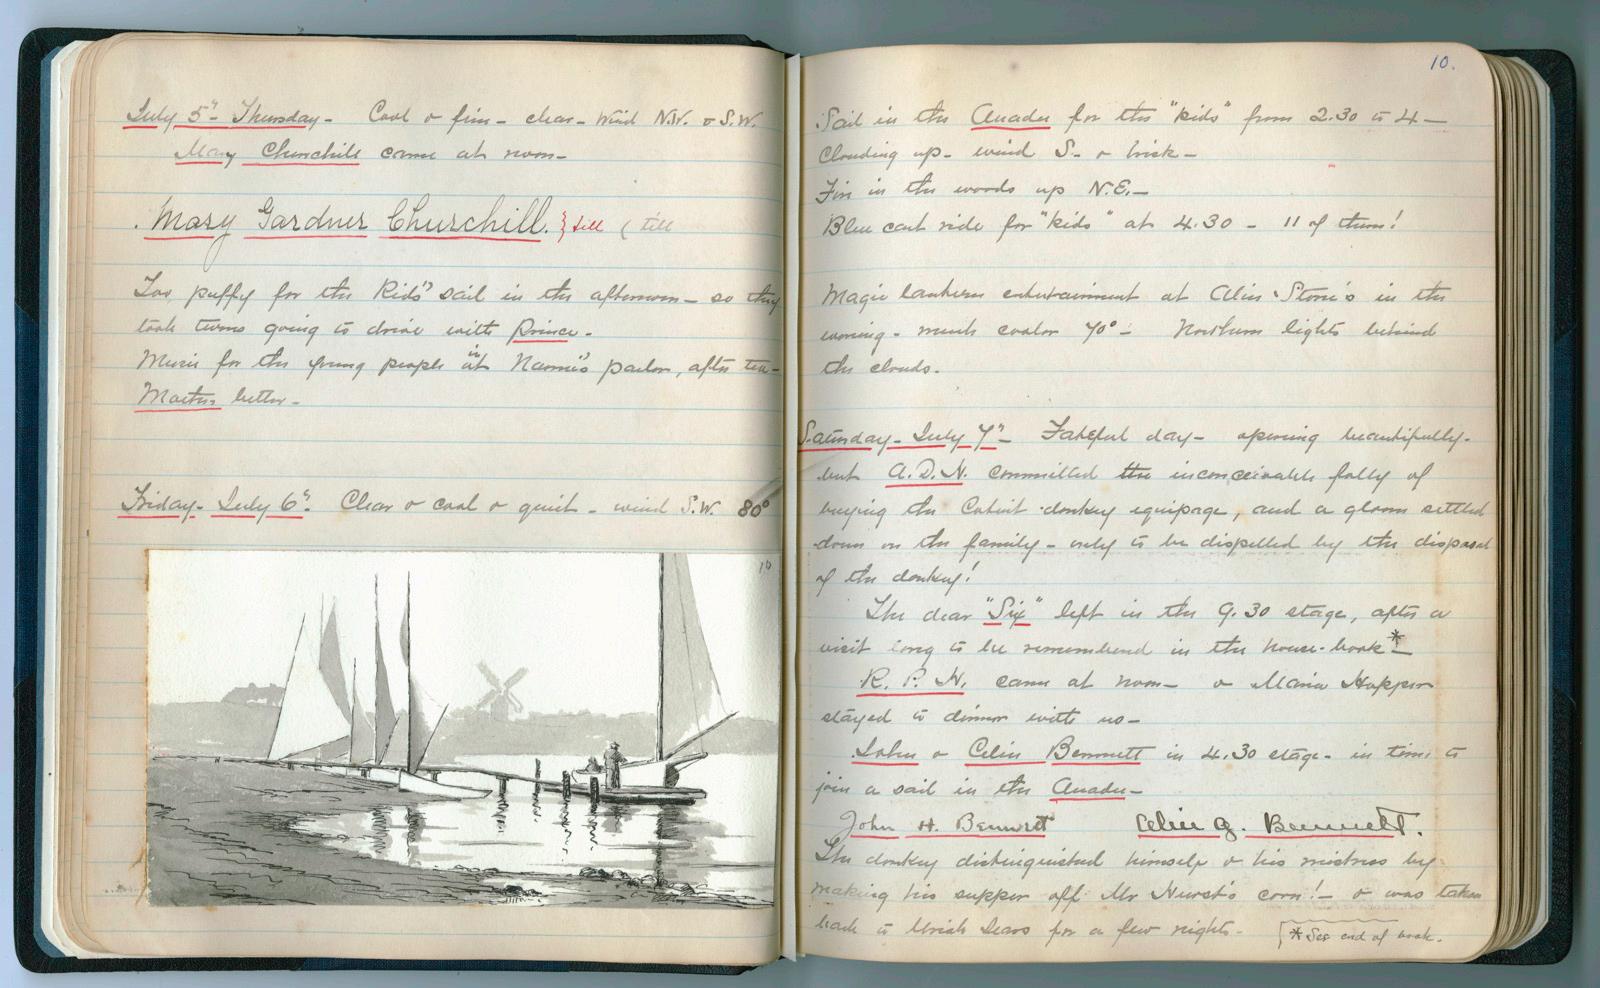 July 5" Thursday - Cool & fine - clear - Wind N.W. & S.W.
Mary Churchill came at noon -
Mary Gardner Churchill. } till ( till
Too puffy for the "Kids'" sail in the afternoon - so they
took turns going to drive with Prince -
Music for the young people in at Naomi's parlor, after tea -
Martin better -
Friday - July 6". Clear & cool & quiet - wind S.W. 80°
10
10.
Sail in the for the "kids" from 2.30 to 4 -
Clouding up - wind S. & brisk -
Fire in the woods up N.E. -
Blue cart ride for "kids" at 4.30 - 11 of them!
Magic lantern entertainment at Alice Stone's in the
evening - much cooler 70° - Northern lights behind
the clouds.
Saturday - July 7" - Fateful day - opening beautifully -
but A.D.H. committed the inconceivable folly of
buying the donkey equipage, and a gloom settled
down on the family - only to be dispelled by the disposal
of the donkey!
The dear "Six" left in the 9.30 stage, after a
visit long to be remembered in the house-book * -
R. P. H. came at noon - & Maria Hopper
stayed to dinner with us -
John & Celia Bennett in 4.30 stage - in time to
join a sail in the
John H. Bennett Celia G. Bennett.
The donkey distinguished himself & his mistress by
making his supper off Mr Hurst's corn! - & was taken
back to Uriah Sears for a few nights -
* See end of book.